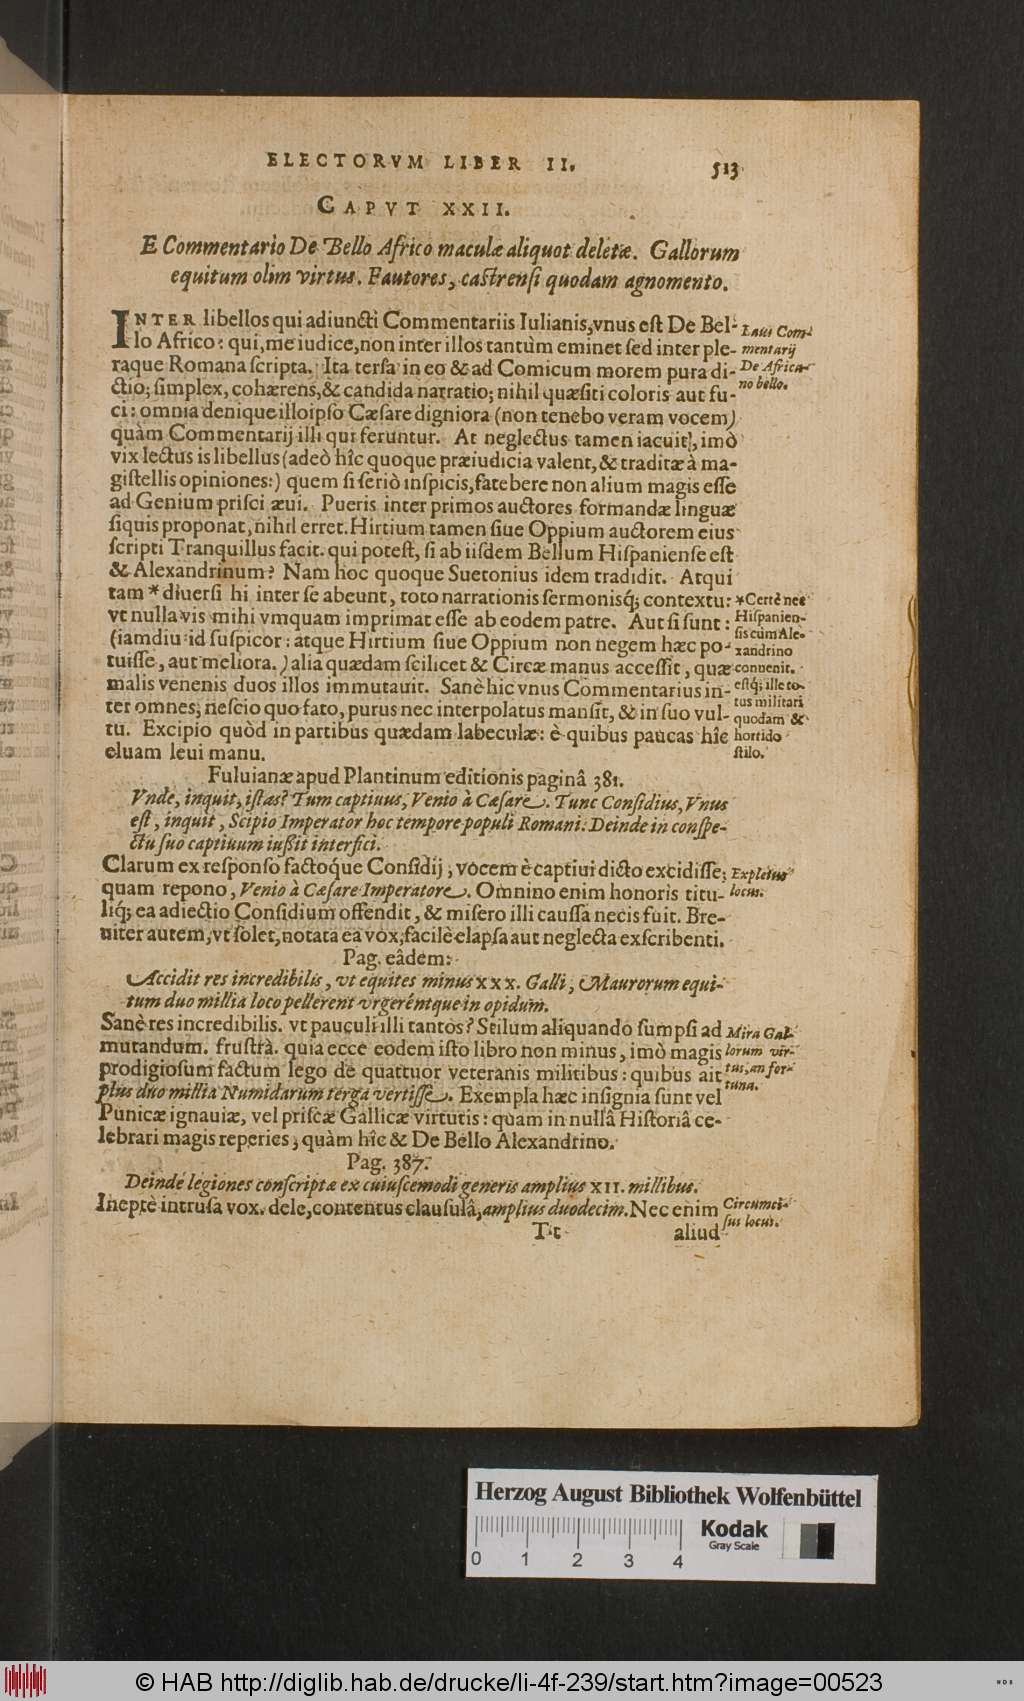 ELECTORVM LIBER II. 513
CAPVT XXII.
E Commentario De Bello Africo maculæ aliquot deletæ. Gallorum
equitum olim virtus. Fautores, castrensi quodam agnomento.
INTER libellos qui adiuncti Commentariis Iulianis, vnus est De Bel-
lo Africo: qui, me iudice, non inter illos tantùm eminet sed inter ple-
raque Romana scripta. Ita tersa in eo & ad Comicum morem pura di-
ctio; simplex, cohærens, & candida narratio; nihil quæsiti coloris aut fu-
ci: omnia denique illo ipso Cæsare digniora (non tenebo veram vocem)
quàm Commentarij illi qui feruntur. At neglectus tamen iacuit, imò
vix lectus is libellus (adeò hîc quoque præiudicia valent, & traditæ à ma-
gistellis opiniones:) quem si seriò inspicis, fatebere non alium magis esse
ad Genium prisci æui. Pueris inter primos auctores formandæ linguæ
siquis proponat, nihil erret. Hirtium tamen siue Oppium auctorem eius
scripti Tranquillus facit. qui potest, si ab iisdem Bellum Hispaniense est
& Alexandrinum? Nam hoc quoque Suetonius idem tradidit. Atqui
tam * diuersi hi inter se abeunt, toto narrationis sermonisq; contextu:
vt nulla vis mihi vmquam imprimat esse ab eodem patre. Aut si sunt:
(iamdiu id suspicor: atque Hirtium siue Oppium non negem hæc po-
tuisse, aut meliora.) alia quædam scilicet & Circæ manus accessit, quæ
malis venenis duos illos immutauit. Sanè hic vnus Commentarius in-
ter omnes, nescio quo fato, purus nec interpolatus mansit, & in suo vul-
tu. Excipio quòd in partibus quædam labeculæ: è quibus paucas hîc
eluam leui manu.
Laus Com-
mentarij
De Africa-
no bello.
*Certè nec
Hispanien-
sis cùm Ale-
xandrino
conuenit.
estq; ille to-
tus militari
quodam &
horrido
stilo.
Fuluianæ apud Plantinum editionis paginâ 381.
Vnde, inquit, istas? Tum captiuus, Venio à Cæsare. Tunc Considius, Vnus
est, inquit, Scipio Imperator hoc tempore populi Romani. Deinde in conspe-
ctu suo captiuum iussit interfici.
Clarum ex responso factóque Considij, vocem è captiui dicto excidisse;
quam repono, Venio à Cæsare Imperatore. Omnino enim honoris titu-
liq; ea adiectio Considium offendit, & misero illi caussa necis fuit. Bre-
uiter autem, vt solet, notata ea vox, facilè elapsa aut neglecta exscribenti.
Expletus
locus.
Pag. eâdem:
Accidit res incredibilis, vt equites minus XXX. Galli, Maurorum equi-
tum duo millia loco pellerent vrgeréntque in opidum.
Sanè res incredibilis. vt pauculi illi tantos? Stilum aliquando sumpsi ad
mutandum. frustrà. quia ecce eodem isto libro non minus, imò magis
prodigiosum factum lego de quattuor veteranis militibus: quibus ait
plus duo millia Numidarum terga vertisse. Exempla hæc insignia sunt vel
Punicæ ignauiæ, vel priscæ Gallicæ virtutis: quam in nullâ Historiâ ce-
lebrari magis reperies, quàm hîc & De Bello Alexandrino.
Mira Gal-
lorum vir-
tus, an for-
tuna.
Pag. 387.
Deinde legiones conscriptæ ex cuiuscemodi generis amplius XII. millibus.
Ineptè intrusa vox. dele, contentus clausulâ, amplius duodecim. Nec enim
Circumci-
sus locus.
Tt aliud
Herzog August Bibliothek Wolfenbüttel
Kodak
Gray Scale
0 1 2 3 4
© HAB http://diglib.hab.de/drucke/li-4f-239/start.htm?image=00523